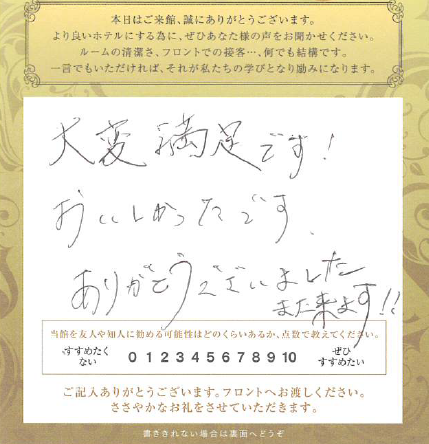 本日はご来館、誠にありがとうございます。
より良いホテルにする為に、ぜひあなた様の声をお聞かせください。
ルームの清潔さ、フロントでの接客…、何でも結構です。
一言でもいただければ、それが私たちの学びとなり励みになります。
大変満足です!
おいしかったです.
ありがとうございました
また来ます!!
当館を友人や知人に勧める可能性はどのくらいあるか、点数で教えてください。
すすめたく
ない
0 1 2 3 4 5 6 7 8 9 10
ぜひ
すすめたい
ご記入ありがとうございます。フロントへお渡しください。
ささやかなお礼をさせていただきます。
書ききれない場合は裏面へどうぞ